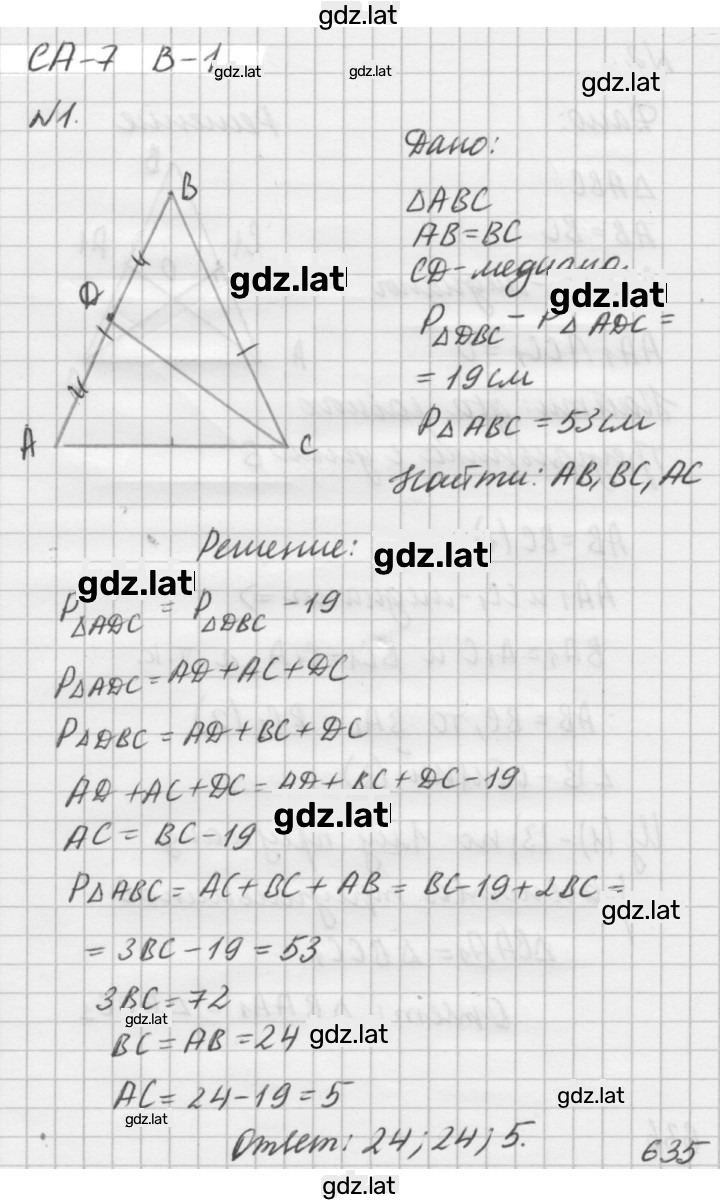 gdz.lat
СА-7 В-1
gdz.lat
gdz.lat
gdz.lat
№1.
Дано:
△ABC
AB=BC
CD-медиана
gdz.lat
gdz.lat
P△DBC - P△ADC =
= 19 см
P△ABC = 53 см
Найти: AB, BC, AC
B
D
A
C
Решение:
gdz.lat
gdz.lat
P△ADC = P△DBC - 19
P△ADC = AD + AC + DC
P△DBC = AD + BC + DC
AD + AC + DC = AD + BC + DC - 19
gdz.lat
AC = BC - 19
P△ABC = AC + BC + AB = BC - 19 + 2BC =
gdz.lat
= 3BC - 19 = 53
3BC = 72
gdz.lat
BC = AB = 24
gdz.lat
AC = 24 - 19 = 5
gdz.lat
gdz.lat
Ответ: 24; 24; 5.
635
gdz.lat